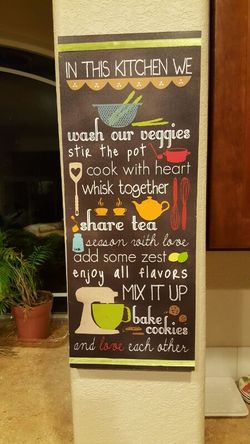 IN THIS KITCHEN WE
wash our veggies
stir the pot
cook with heart
whisk together
share tea
season with love
add some zest
enjoy all flavors
MIX IT UP
bake
cookies
and love each other